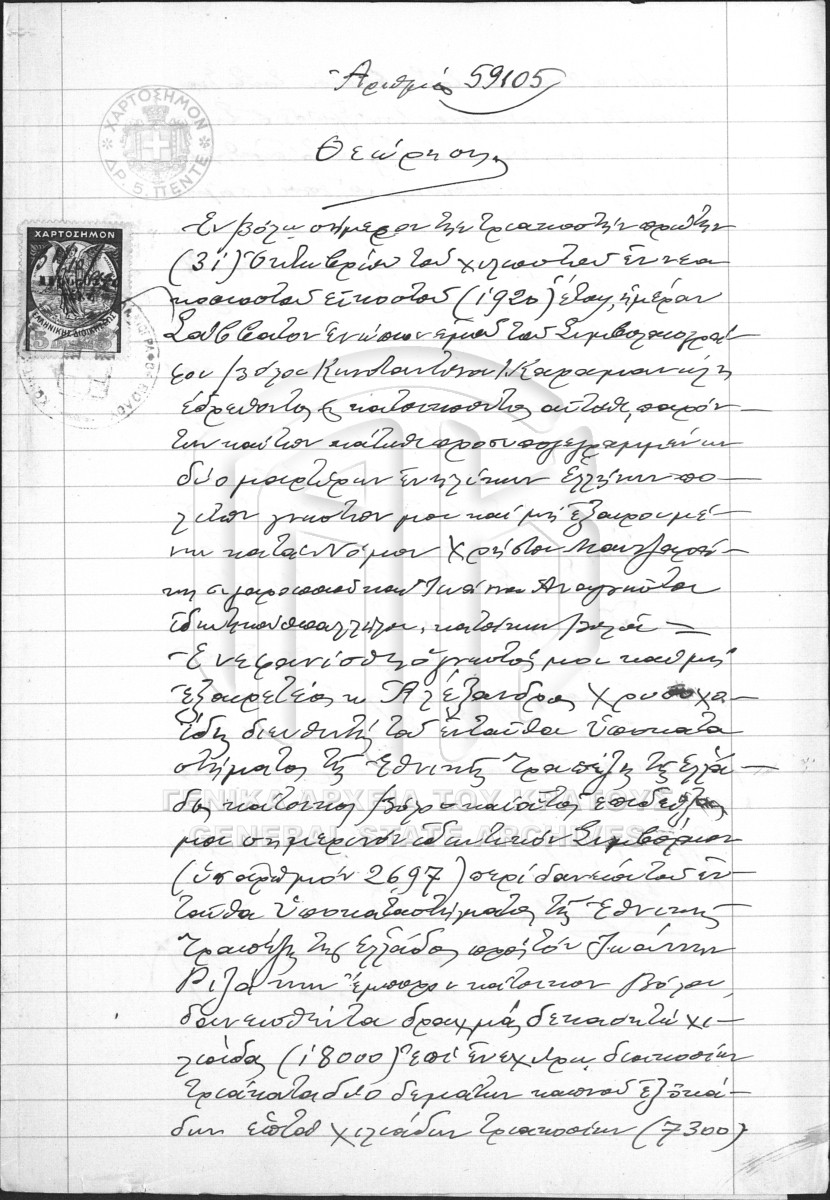 Ἀριθμός 59105
Θεώρησις
ΧΑΡΤΟΣΗΜΟΝ
ΔΡ. 5. ΠΕΝΤΕ
ΧΑΡΤΟΣΗΜΟΝ
ΕΛΛΗΝΙΚΗ ΔΙΟΙΚΗΣΙΣ
Ἐν Βόλῳ σήμερον τὴν τριακοστὴν πρώτην
(31) Ὀκτωβρίου τοῦ χιλιοστοῦ ἐννεα
κοσιοστοῦ εἰκοστοῦ (1920) ἔτους, ἡμέραν
Σάββατον ἐνώπιον ἐμοῦ τοῦ Συμβολαιογρά
φου Βόλου Κωνσταντίνου Ι. Καραμιανώλη
ἑδρεύοντος κ κατοικοῦντος αὐτόθι, παρόν–
των καὶ τῶν κάτωθι προσυπογεγραμμένων
δύο μαρτύρων ἐνηλίκων Ἑλλήνων πο–
λιτῶν γνωστῶν μοι καὶ μὴ ἐξαιρουμέ–
νων κατὰ Νόμον Χρήστου
καὶ Ἰωάννου Ἀναγνώστου
ἰδιωτικοῦ ὑπαλλήλου, κατοίκων Βόλου –
Ἐνεφανίσθη ὁ γνωστός μοι καὶ μὴ
ἐξαιρετέος κ. Ἀλέξανδρος Χρυσοχο–
ΐδης διευθυντὴς τοῦ ἐνταῦθα Ὑποκατα
στήματος τῆς Ἐθνικῆς Τραπέζης τῆς Ἑλλά–
δος κάτοικος Βόλου καὶ
μοι σημερινὸν ἰδιωτικὸν Συμβόλαιον
(ὑπ' ἀριθμὸν 2697) περὶ δανείου τοῦ ἐν–
ταῦθα Ὑποκαταστήματος τῆς Ἐθνικῆς
Τραπέζης τῆς Ἑλλάδος πρὸς τὸν Ἰωάννην
Ριζάκην ἔμπορον κάτοικον Βόλου,
δανεισθέντα δραχμὰς δεκαοκτὼ χι–
λιάδας (18000) ἐπὶ ἐνεχύρῳ διακοσίων
τριάκοντα δύο δεμάτων καπνοῦ ἐξ ὀκά–
δων ἑπτὰ χιλιάδων τριακοσίων (7300)
ΓΕΝΙΚΑ ΑΡΧΕΙΑ ΤΟΥ ΚΡΑΤΟΥΣ
GENERAL STATE ARCHIVES